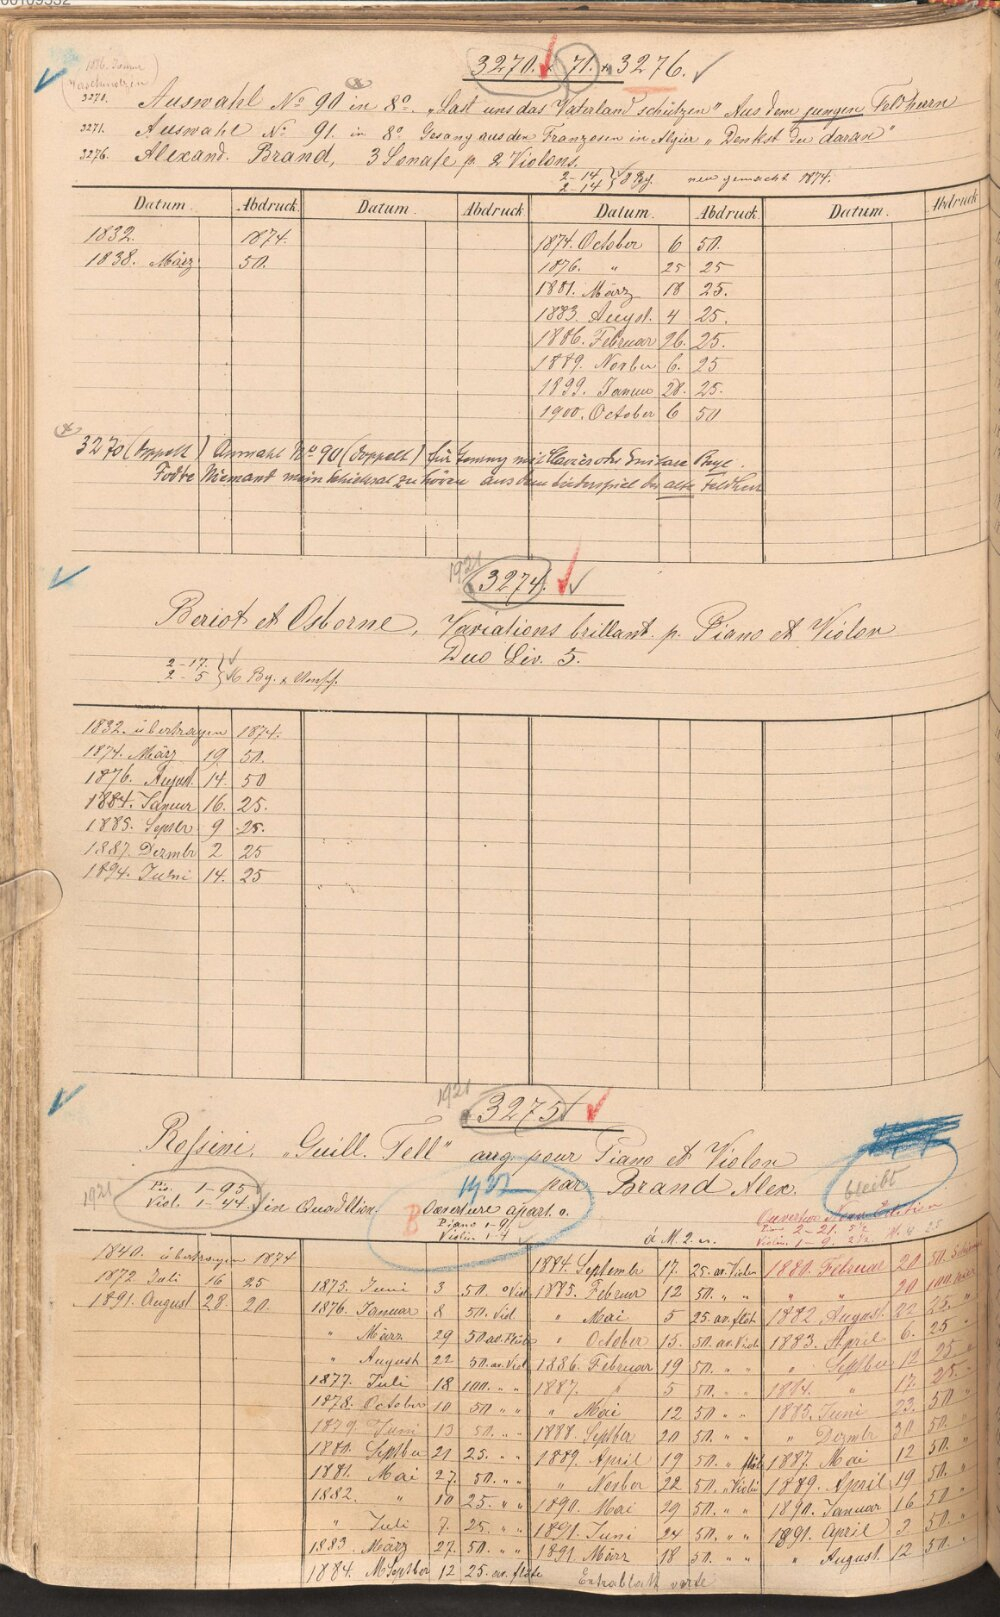 3270. + 71. + 3276.
3270. Auswahl No 90 in 8o „Last uns das Vaterland schützen" Aus dem jungen Feldherrn
3271. Auswahl No 91. in 8o Gesang aus den Franzosen in Algier „Denkst du daran"
3276. Alexand. Brand, 3 Sonate p. 2 Violons.
2-14
2-14 8 Bg. neu gemacht 1874.
Datum. Abdruck. Datum. Abdruck. Datum. Abdruck. Datum. Abdruck.
1832. 1874.
1838. März 50.
1874. October 6 50.
1876. " 25 25
1881. März 18 25.
1883. August. 4 25.
1886. Februar 26. 25.
1889. Novber 6. 25
1899. Januar 28. 25.
1900. October 6 50
3270 (doppelt) Auswahl No 90 (doppelt) für
Niemand mein Schicksal zu hören aus dem Liederspiel der alte Feldherr
1921
3274.
Beriot et Osborne, Variations brillant. p. Piano et Violon
Duo Liv. 5.
2-17.
2-5
1832. übertragen 1874.
1874. März 19 50.
1876. August. 14. 50
1884. Januar 16. 25.
1885. Septbr 9 25.
1887. Dezmbr 2 25
1894. Juni 14. 25
1921
3275
Rossini, „Guill. Tell" arrg. pour Piano et Violon
par Brand Alex.
bleibt
1921
Pio. 1-95
Viol. 1-44
Ouverture apart. a.
Piano 1-9
Violin 1-4
à M. 2. n.
2-21.
Violin. 1-9.
1840. übertragen 1874
1872 Juli 16 25
1891. August 28. 20.
1875. Juni 3 50. Viol
1876. Januar 8 50. Viol
" März 29 50
" August 22 50. Viol
1877. Juli 18 100. " "
1878. October 10 50 " "
1879. Juni 13 50. " "
1880. Septber 21 25. " "
1881. Mai 27. 50. " "
1882. " 10 25. " "
" Juli 7. 25. " "
1883. März 27. 50. " "
1884. Septber 12 25. flöte
1884. Septembr 17. 25.
1885. Februar 12 50. " "
" Mai 5 25. flöt
" October 15. 50.
1886. Februar 19 50. " "
1887. " 5 50. " "
" Mai 12 50. " "
1888. Septber 20 50. " "
1889. April 19 50. "
" Novber 22 50. " Violin
1890. Mai 29 50. " "
1891. Juni 24 50. " "
1891. März 18 50. " "
1880. Februar 20 50.
" " 20 100.
1882 August. 22 25. "
1883. April 6. 25 "
" Septber 12 25. "
1884. " 17. 25. "
1885. Juni 23. 50 "
" Dezmbr 30 50. "
1887. Mai 12 50. "
1889. April 19 50. "
1890. Januar 16 50 "
1891. April 3 50. "
" August. 12 50. "